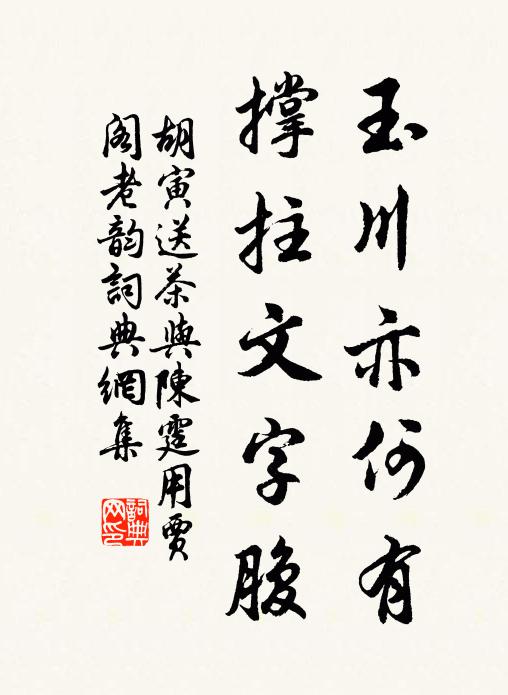 玉川亦何有
撐拄文字腹
胡寅送茶與陳霆用賈
閣老韵詞典網集
詞典
网印